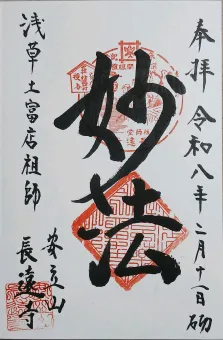 奉拝 令和八年二月十一日 砌
妙法
安立山
長遠寺
浅草土富店祖師